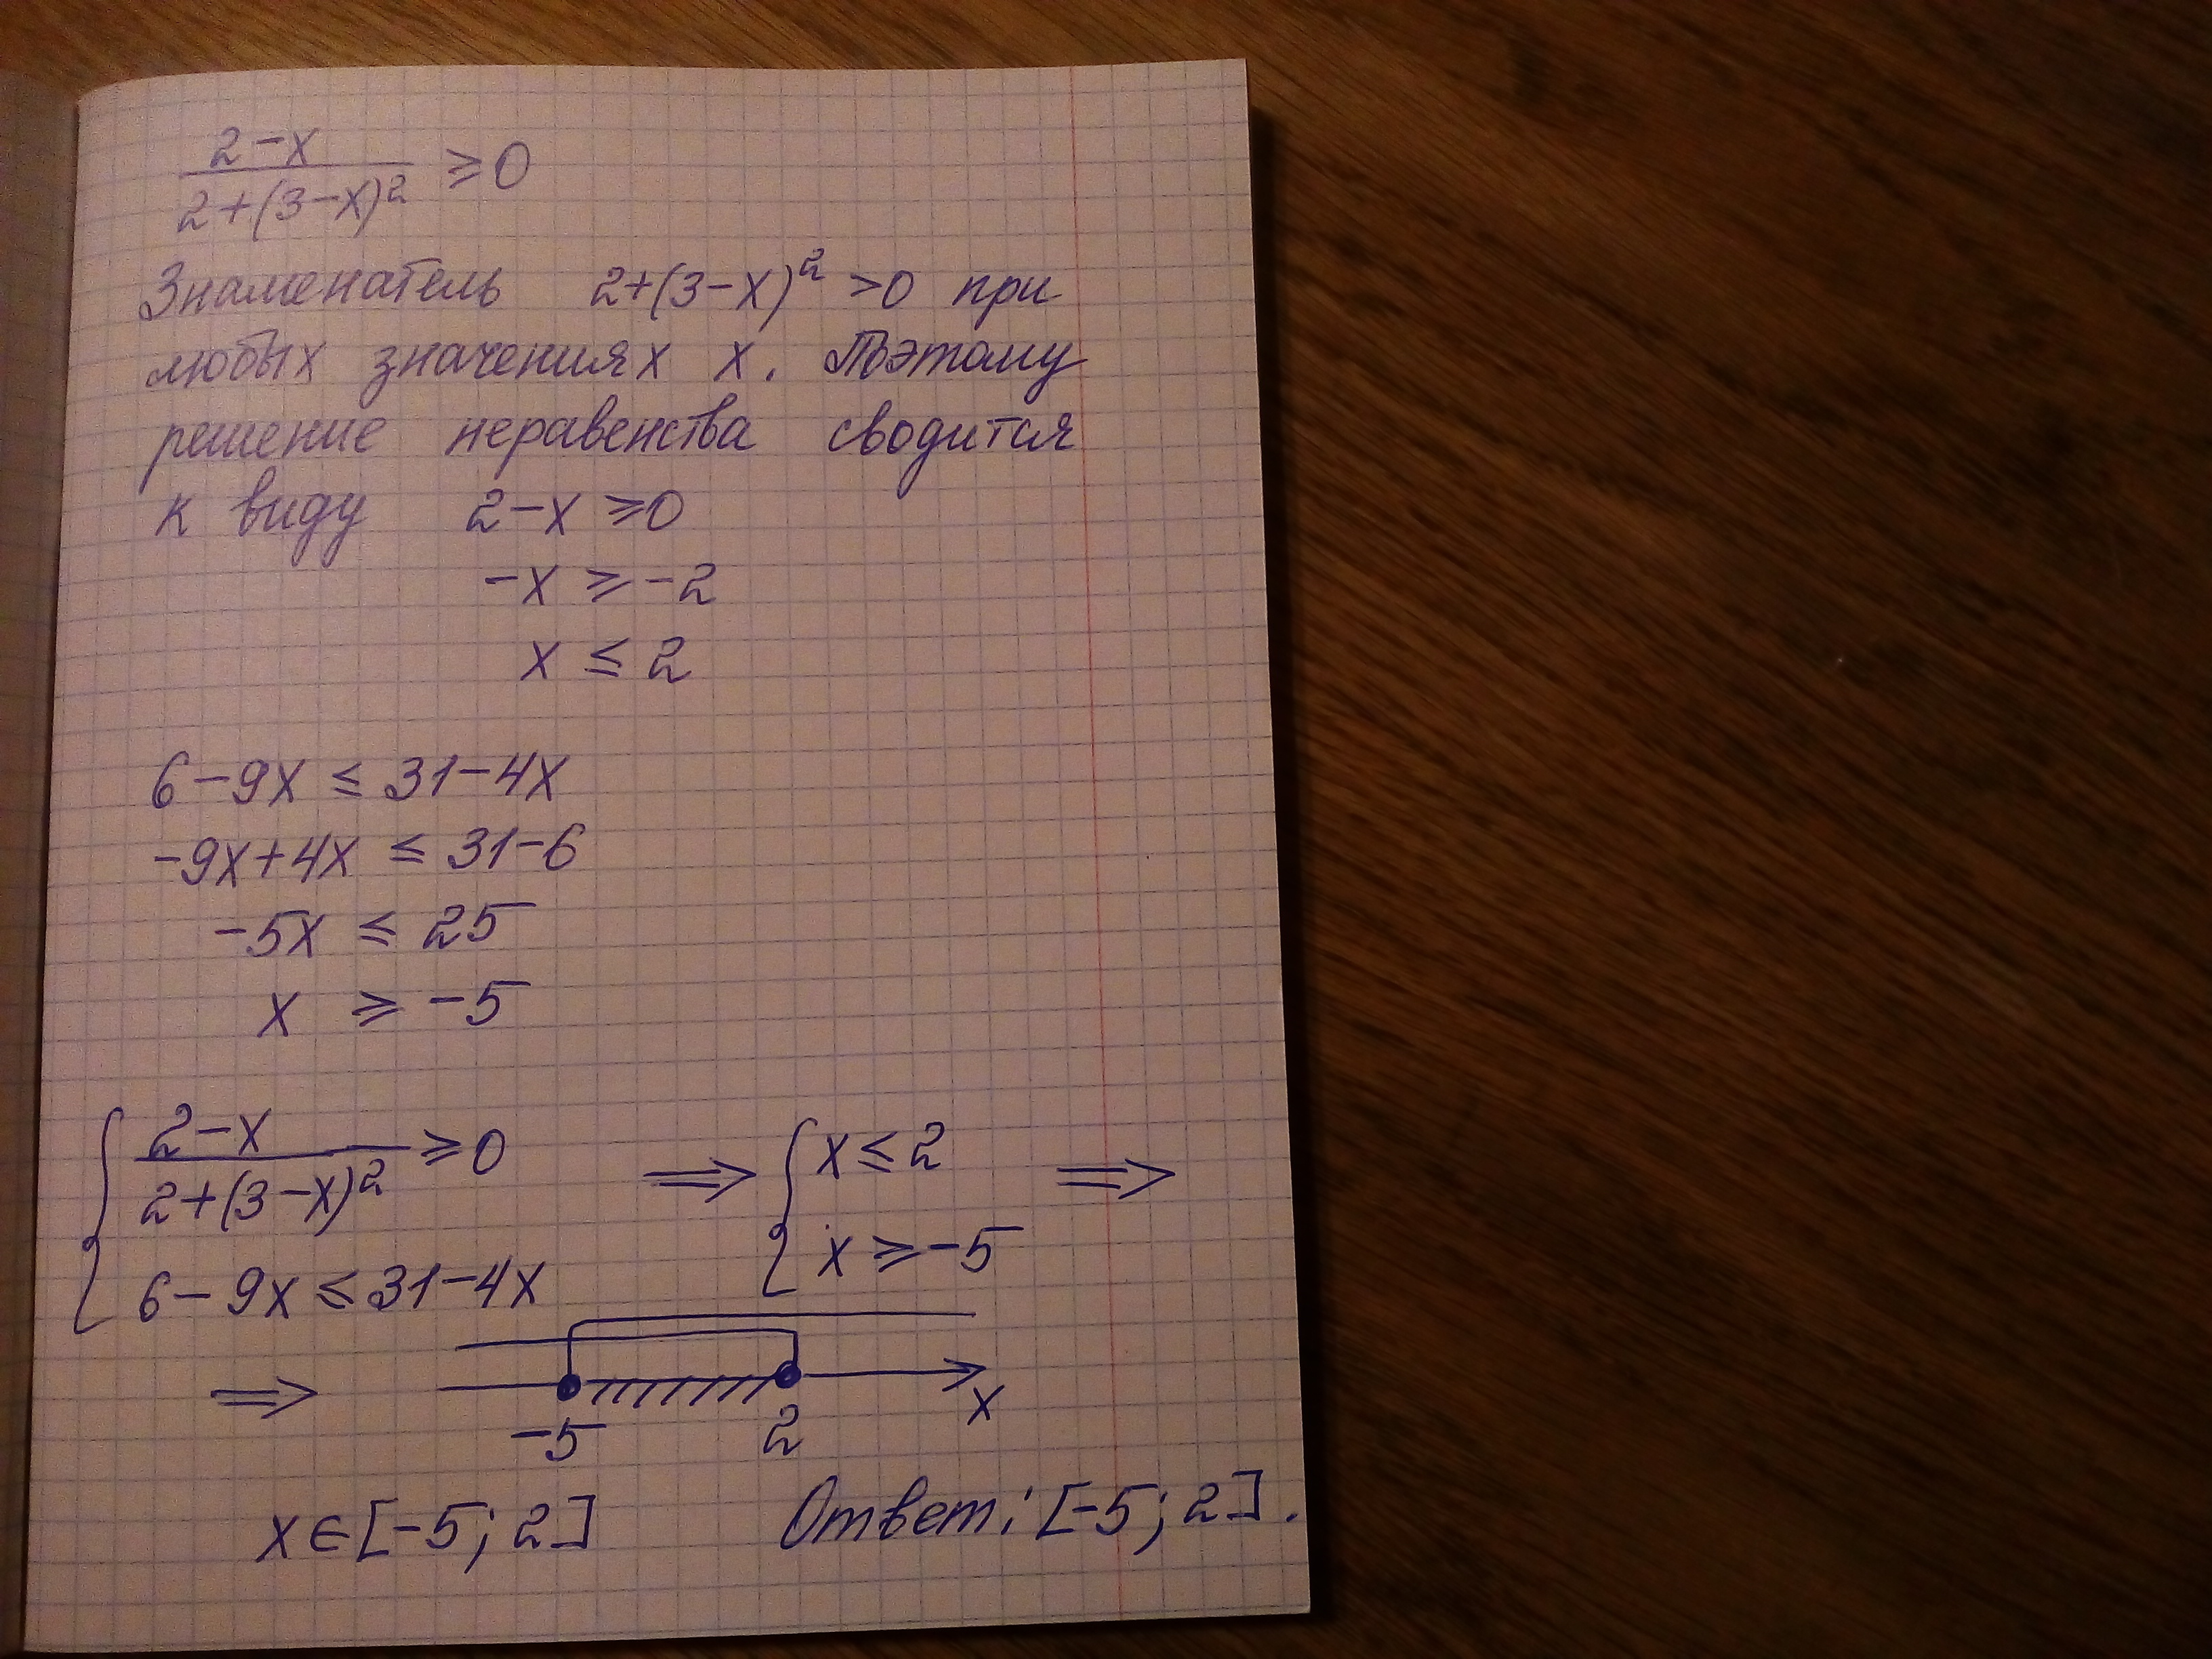 (2-x)/(2+(3-x)²) ≥0
Знаменатель 2+(3-x)² >0 при
любых значениях x. Поэтому
решение неравенства сводится
к виду 2-x ≥0
-x ≥ -2
x ≤ 2
6-9x ≤ 31-4x
-9x+4x ≤ 31-6
-5x ≤ 25
x ≥ -5
{ (2-x)/(2+(3-x)²) ≥0 ⟹ { x ≤ 2 ⟹
6-9x ≤ 31-4x x ≥ -5
⟹ -5 2 x
x∈[-5; 2] Ответ: [-5; 2].